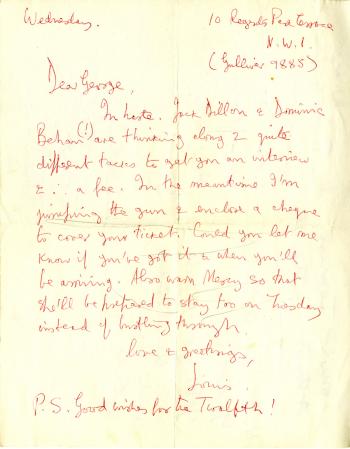 Wednesday.
10 Regents Park Terrace
N.W.1.
(Gulliver 9885)
Dear George,
In haste. Jack Dillon & Dominic
Behan (!) are thinking along 2 quite
different tacks to get you an interview
& ∴ a fee. In the meantime I'm
jumping the gun & enclose a cheque
to cover your ticket. Could you let me
know if you've got it & when you'll
be arriving. Also warn Mercy so that
she'll be prepared to stay too on Tuesday
instead of bustling through.
love & greetings,
Louis.
P.S. Good wishes for the Twelfth!